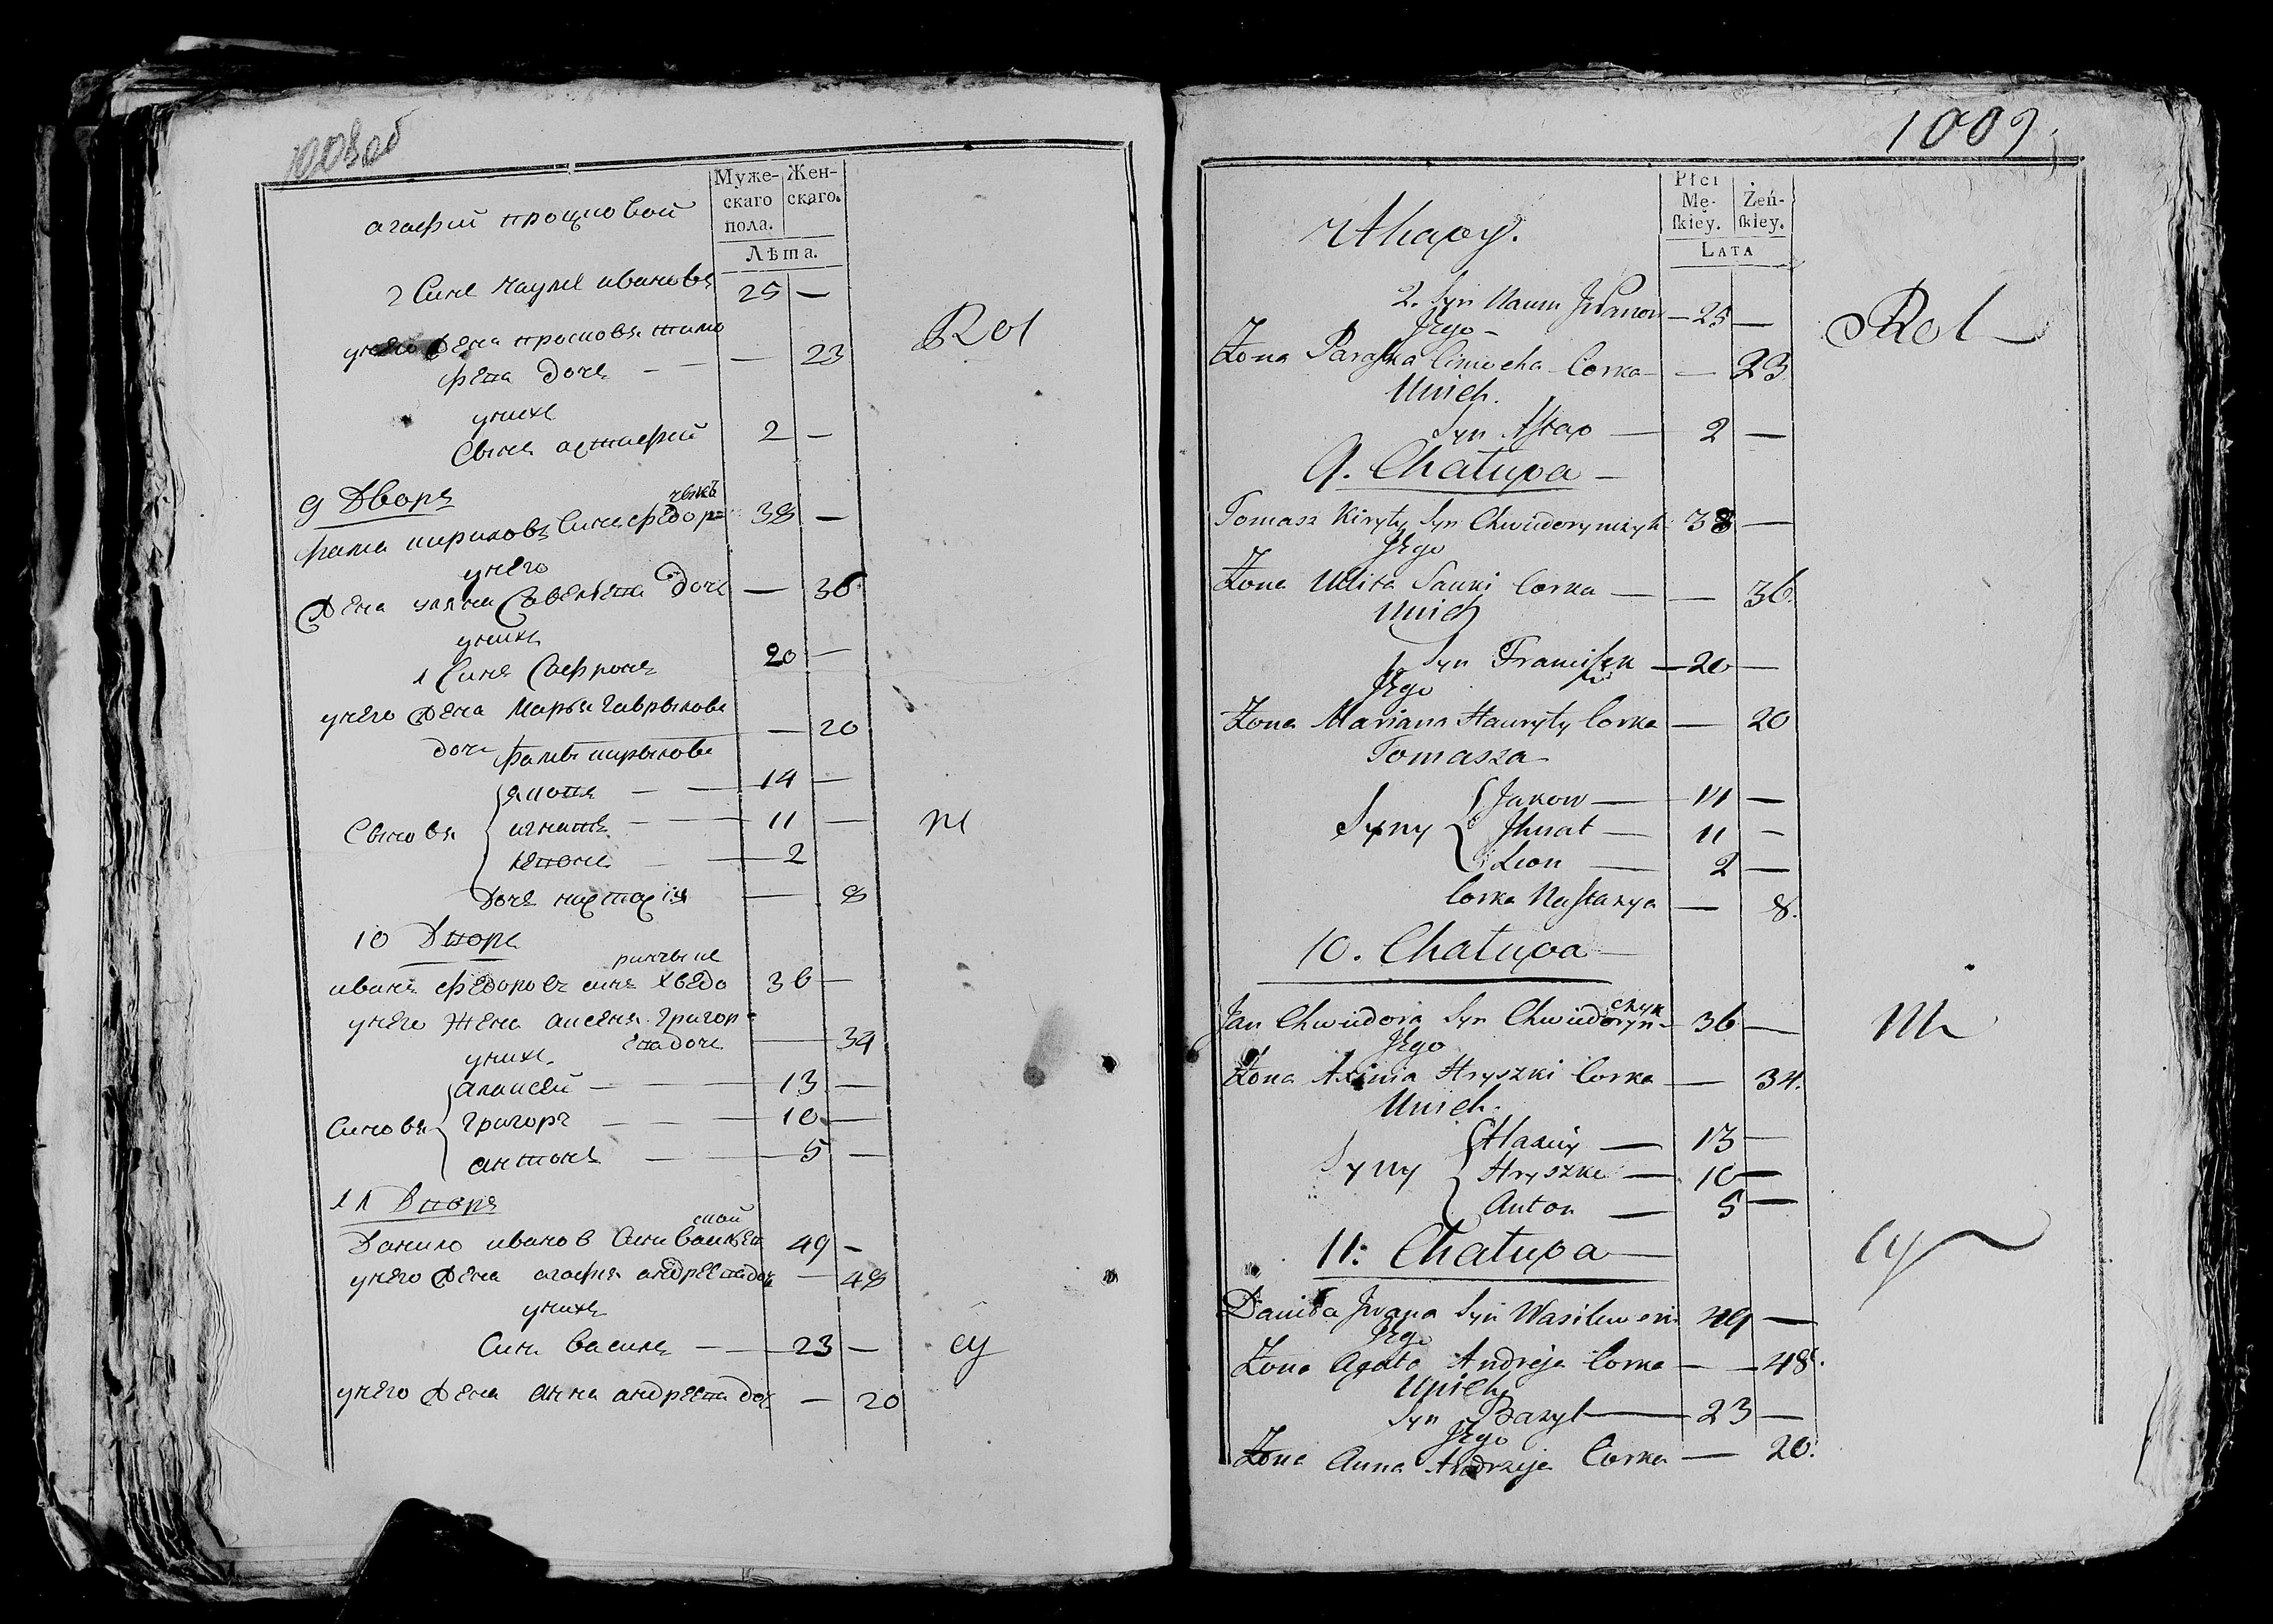 1008 об
Муже-
скаго
пола.
Жен-
скаго.
Лѣта.
агафии
2 Синъ наумъ ивановъ 25 —
Rol
унего жена просковя тимо
фева дочь — — 23
унихъ
Сынъ астафей 2 —
9 Дворъ
чыкъ
фама кириловъ Синъ федор= 38 —
унего
жена уляна Савельева дочь — 36
унихъ
1 Синъ Сафронъ 20 —
унего жена Марья гаврылова
дочь — 20
фамы кирылова
Сыновя { яковъ — — 14 —
игнатъ — 11 —
левонъ — 2
дочь настасія — 8
10 Дворъ
ринчыкъ
иванъ федоровъ синъ хведо 36 —
унего жена аксеня григор=
ева дочь — 34
унихъ
Синовя { алаксей — 13 —
григоръ — 10 —
антонъ — 5 —
11 Дворъ
ской
Данило иванов Синъ Васильев 49 —
унего жена агафия андреева доч — 48
унихъ
Синъ василь — 23 —
унего жена анна андреева доч — 20
1009
Płci
Mę-
ſkiey.
Żeń-
ſkiey.
LATA
Ahapy.
2. Syn Naum Jwanow — 25 —
Jego —
Rol
Żona Paraska Cimocha Corka — — 23
Unich.
Syn Astap — 2 —
9. Chałupa —
Tomasz Kiryły Syn Chwiedorynczyk 38 —
Jego
Żona Ullita Sawki Corka — — 36.
Unich
1 Syn Franciszek — 20 —
Jego
Żona Mariana Hauryły Corka — 20
Tomasza
Syny { Jakow — 14 —
Jhnat — 11 —
Leon — 2 —
Corka Nastazya — 8.
10. Chałupa —
czyk
Jan Chwiedora Syn Chwiedoryn — 36 —
Jego
Żona Axinia Hryszki Corka — 34.
Unich.
Syny { — 13 —
Hryszka — 10 —
Anton — 5 —
11. Chałupa —
Daniła Jwana Syn Wasilewski 49 —
Jego
Żona Agata Andreja Corka — — 48.
Unich
Syn Bazyl — 23 —
Jego
Żona Anna Andrzeja Corka — 20.